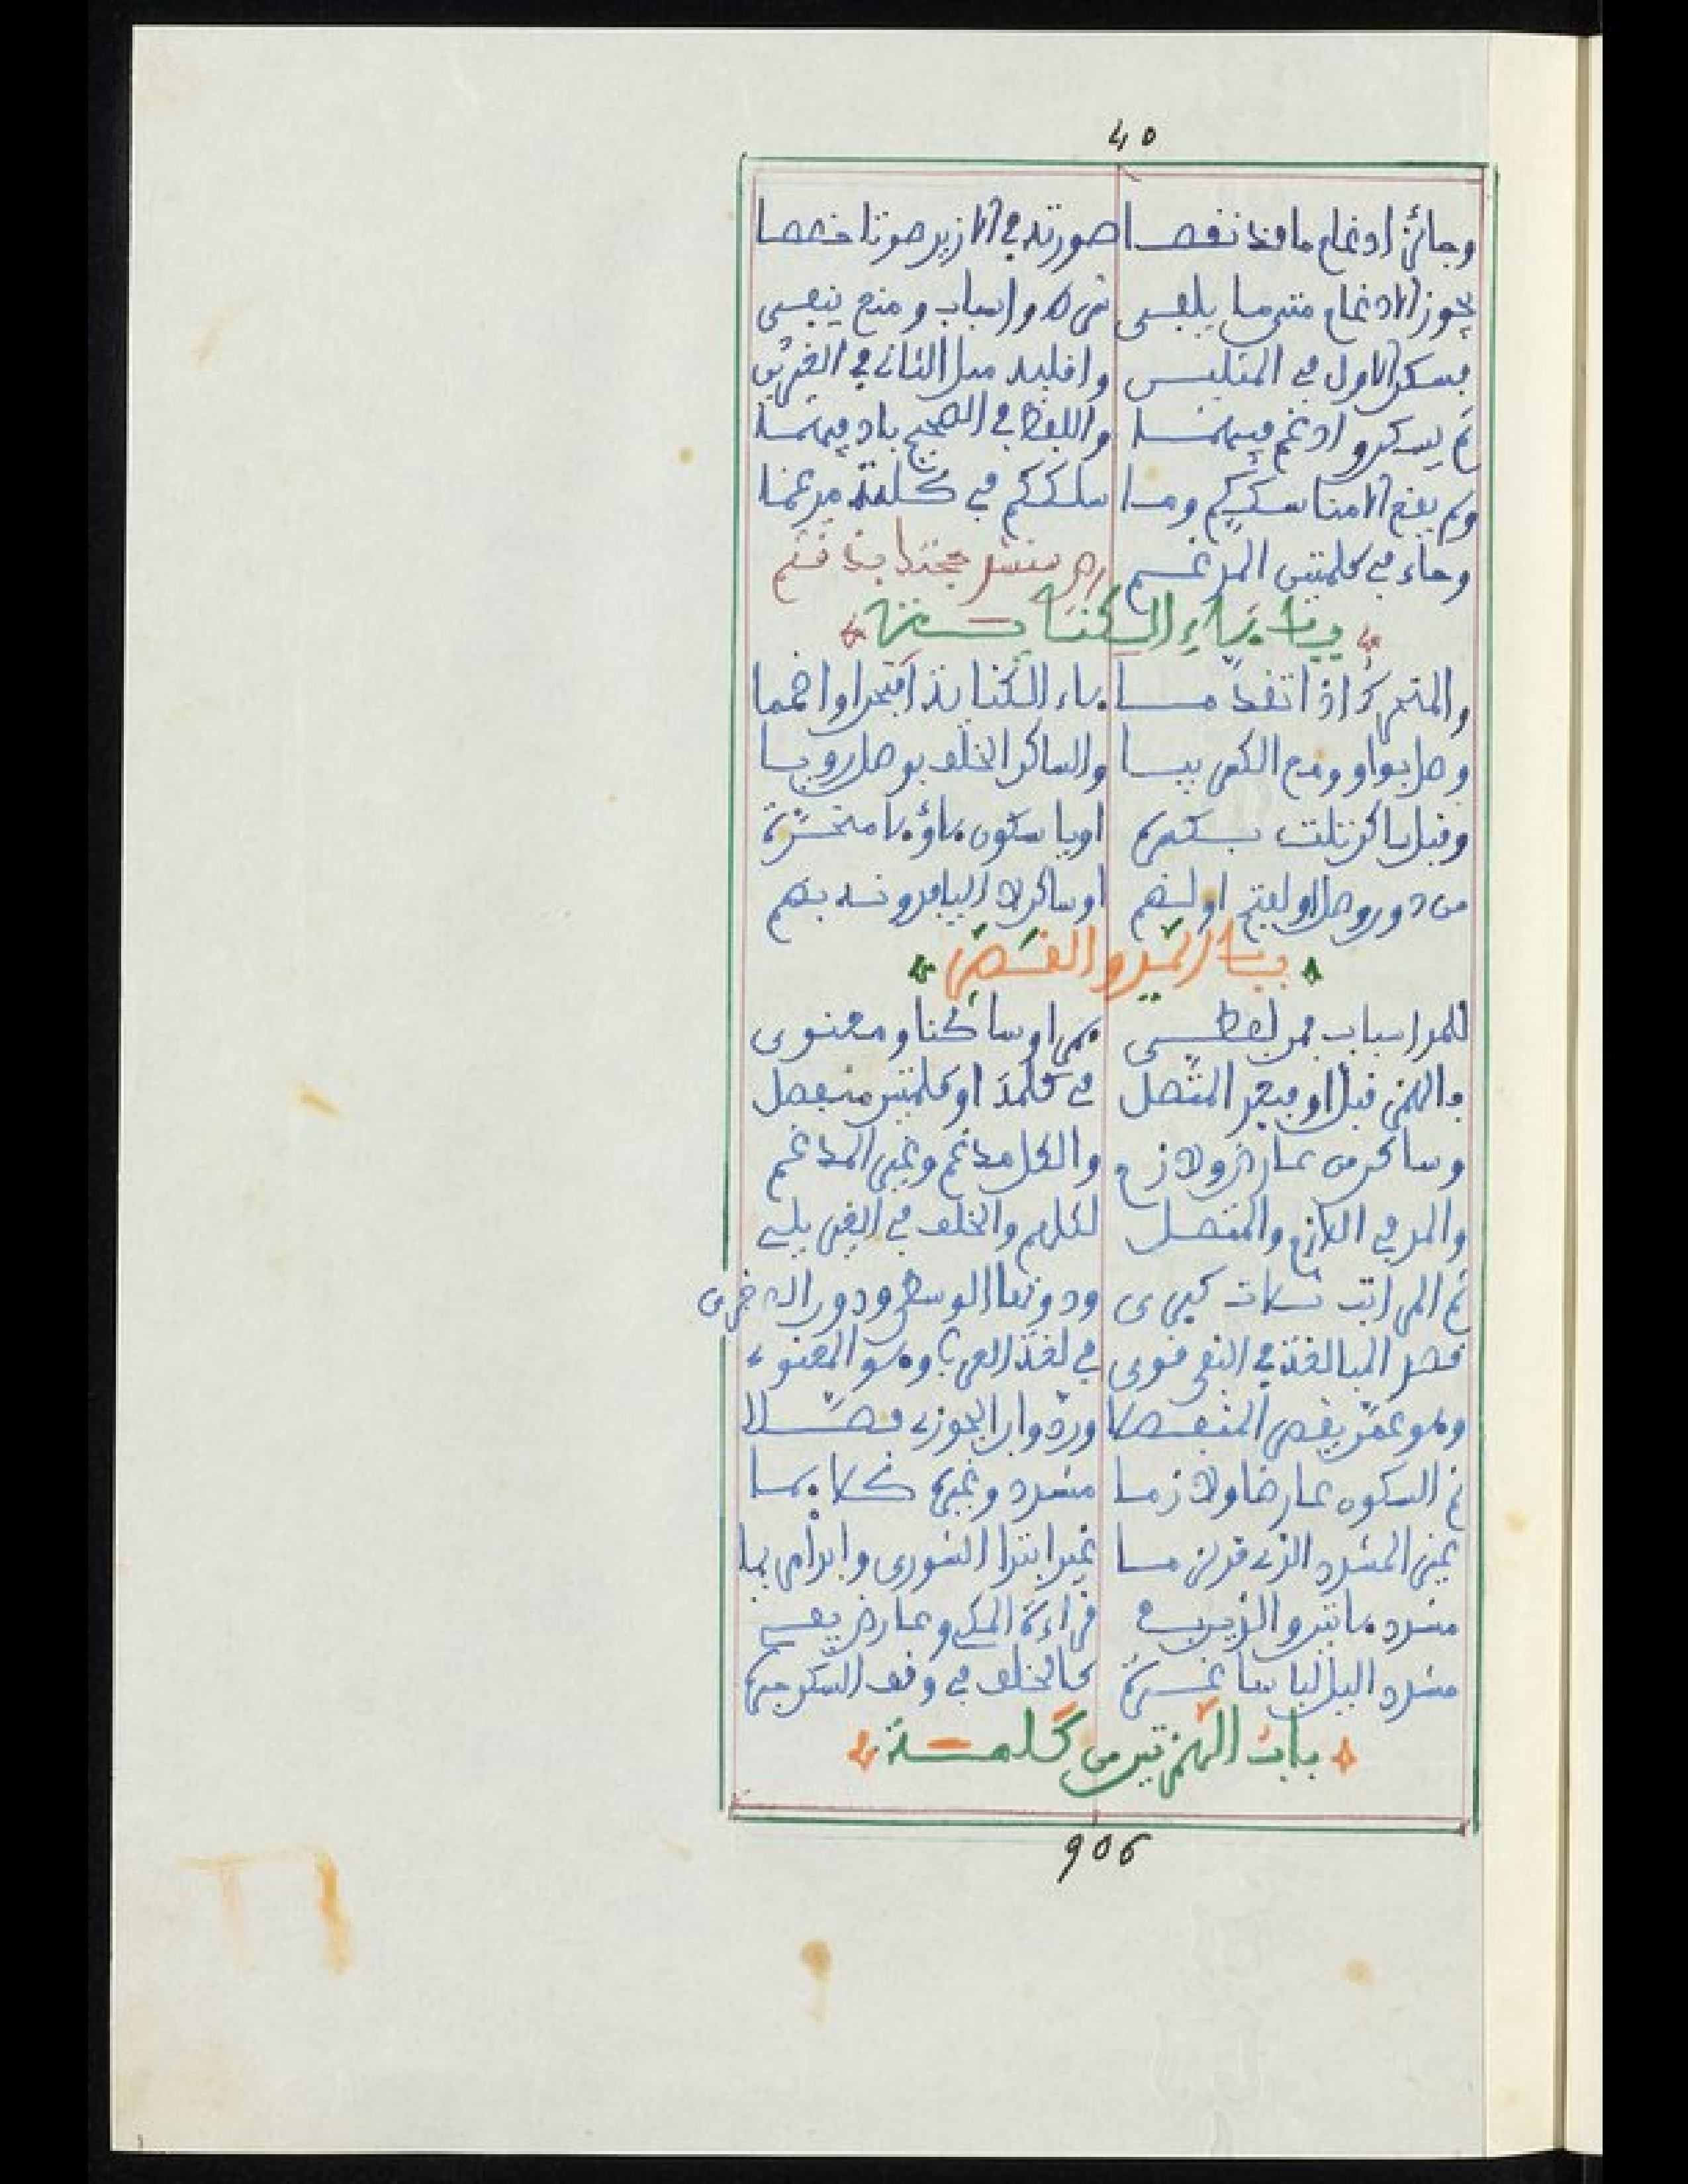 40
وجائز ادغام ما قد نقصا صورته في الازيد صوتا خصصا
يجوز الادغام متى ما يلفى شرط واسباب ومنع ينفى
فسكن الاول في المثلين واقلبه مثل الثاني في الغيرين
ثم يسكن وادغم فيهما واللفظ في الصحيح باد فيهما
ولم يقع الا مناسككم وما سلككم في كلمة مدغما
وجاء في كلمتين المدغم
باب هاء الكناية
والمتحرك اذا تقدما هاء الكناية افتحن او اضمما
وصل بواو ومع الكسر بيا والساكن الخلف بوصل رويا
وقبل ياكن تلت بكسرة او يا سكون هاؤها
من دون وصل او لفتح او لضم او ساكن لا اليا فدونه بضم
باب المد والقصر
للمد اسباب فمن لفظي همز او ساكنا ومعنوي
والهمز قبل او فبعد المتصل في كلمة او كلمتين منفصل
وساكن من عارض ولازم والكل مدغم وغير المدغم
والمد في اللازم والمتصل لكلهم والخلف في الغير يلي
ثم المراتب ثلاث كبرى ودونها الوسطى ودون الاخرى
قصد المبالغة في النفي قوي في لغة العرب وهو المعنوي
وهو عمن يقصر المنفصلا ورد وابن الجوزي فصلا
ثم السكون عارضا ولازما مشدد وغيره كلاهما
غير المشدد الذي قد لزما غير ابتدا الشورى وابدلهم بما
مشدد هاتين والذين في قراءة المكي وعارض يفي
مشدد اليل لباسا غيره كالخلف في وقف السكون
باب الهمزتين من كلمة
906